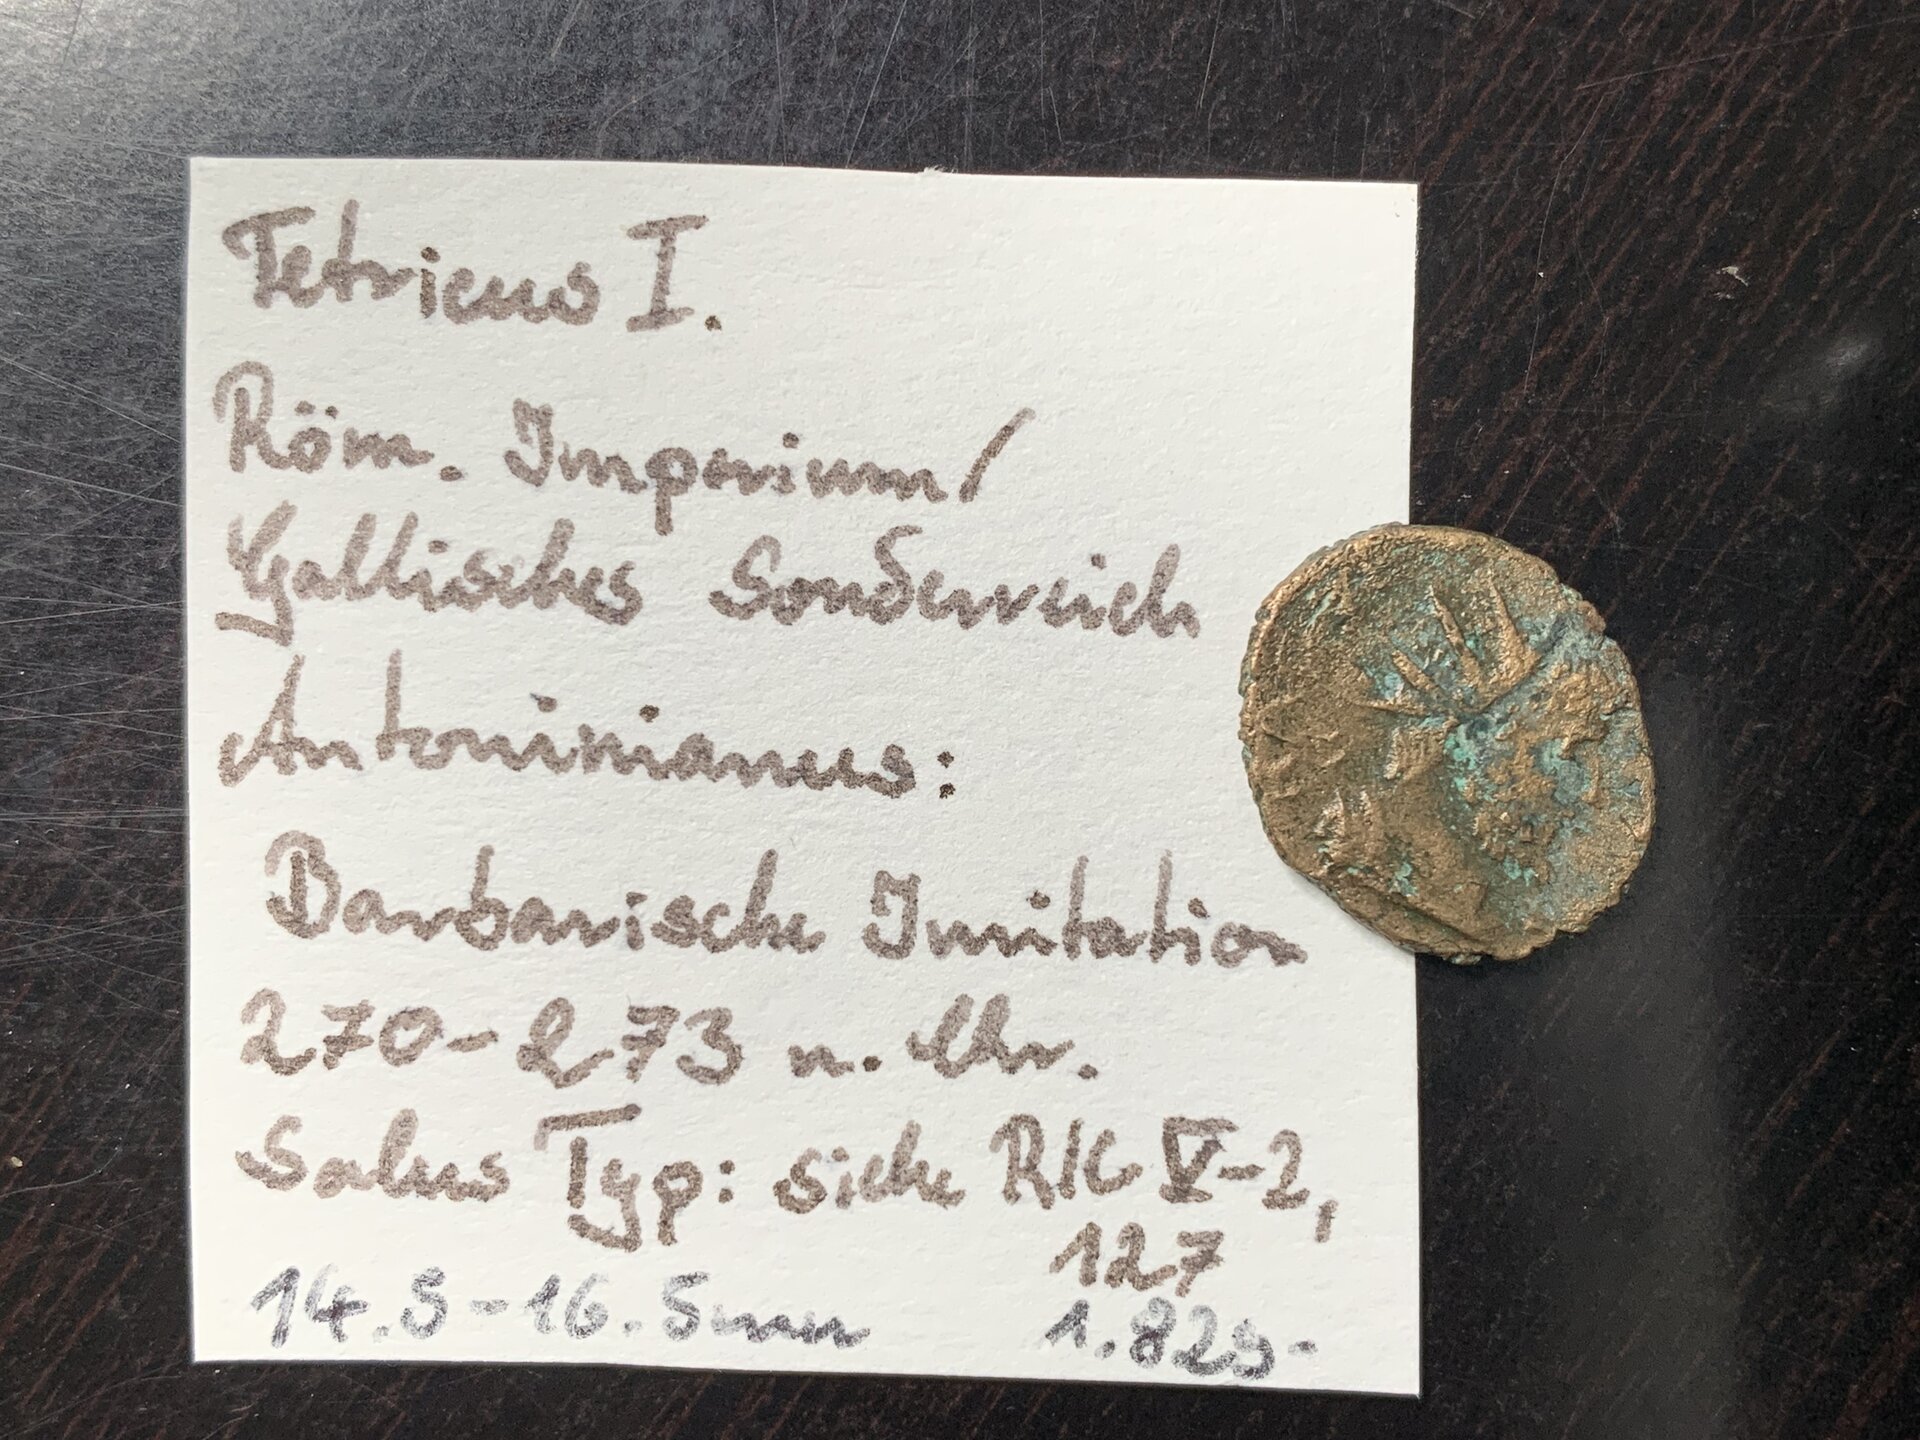 Tetricus I.
Röm. Imperium/
Gallisches Sonderreich
Antoninianus:
Barbarische Imitation
270-273 n. Chr.
Salus Typ: siehe RIC V-2,
127
14.5-16.5mm 1.82g.